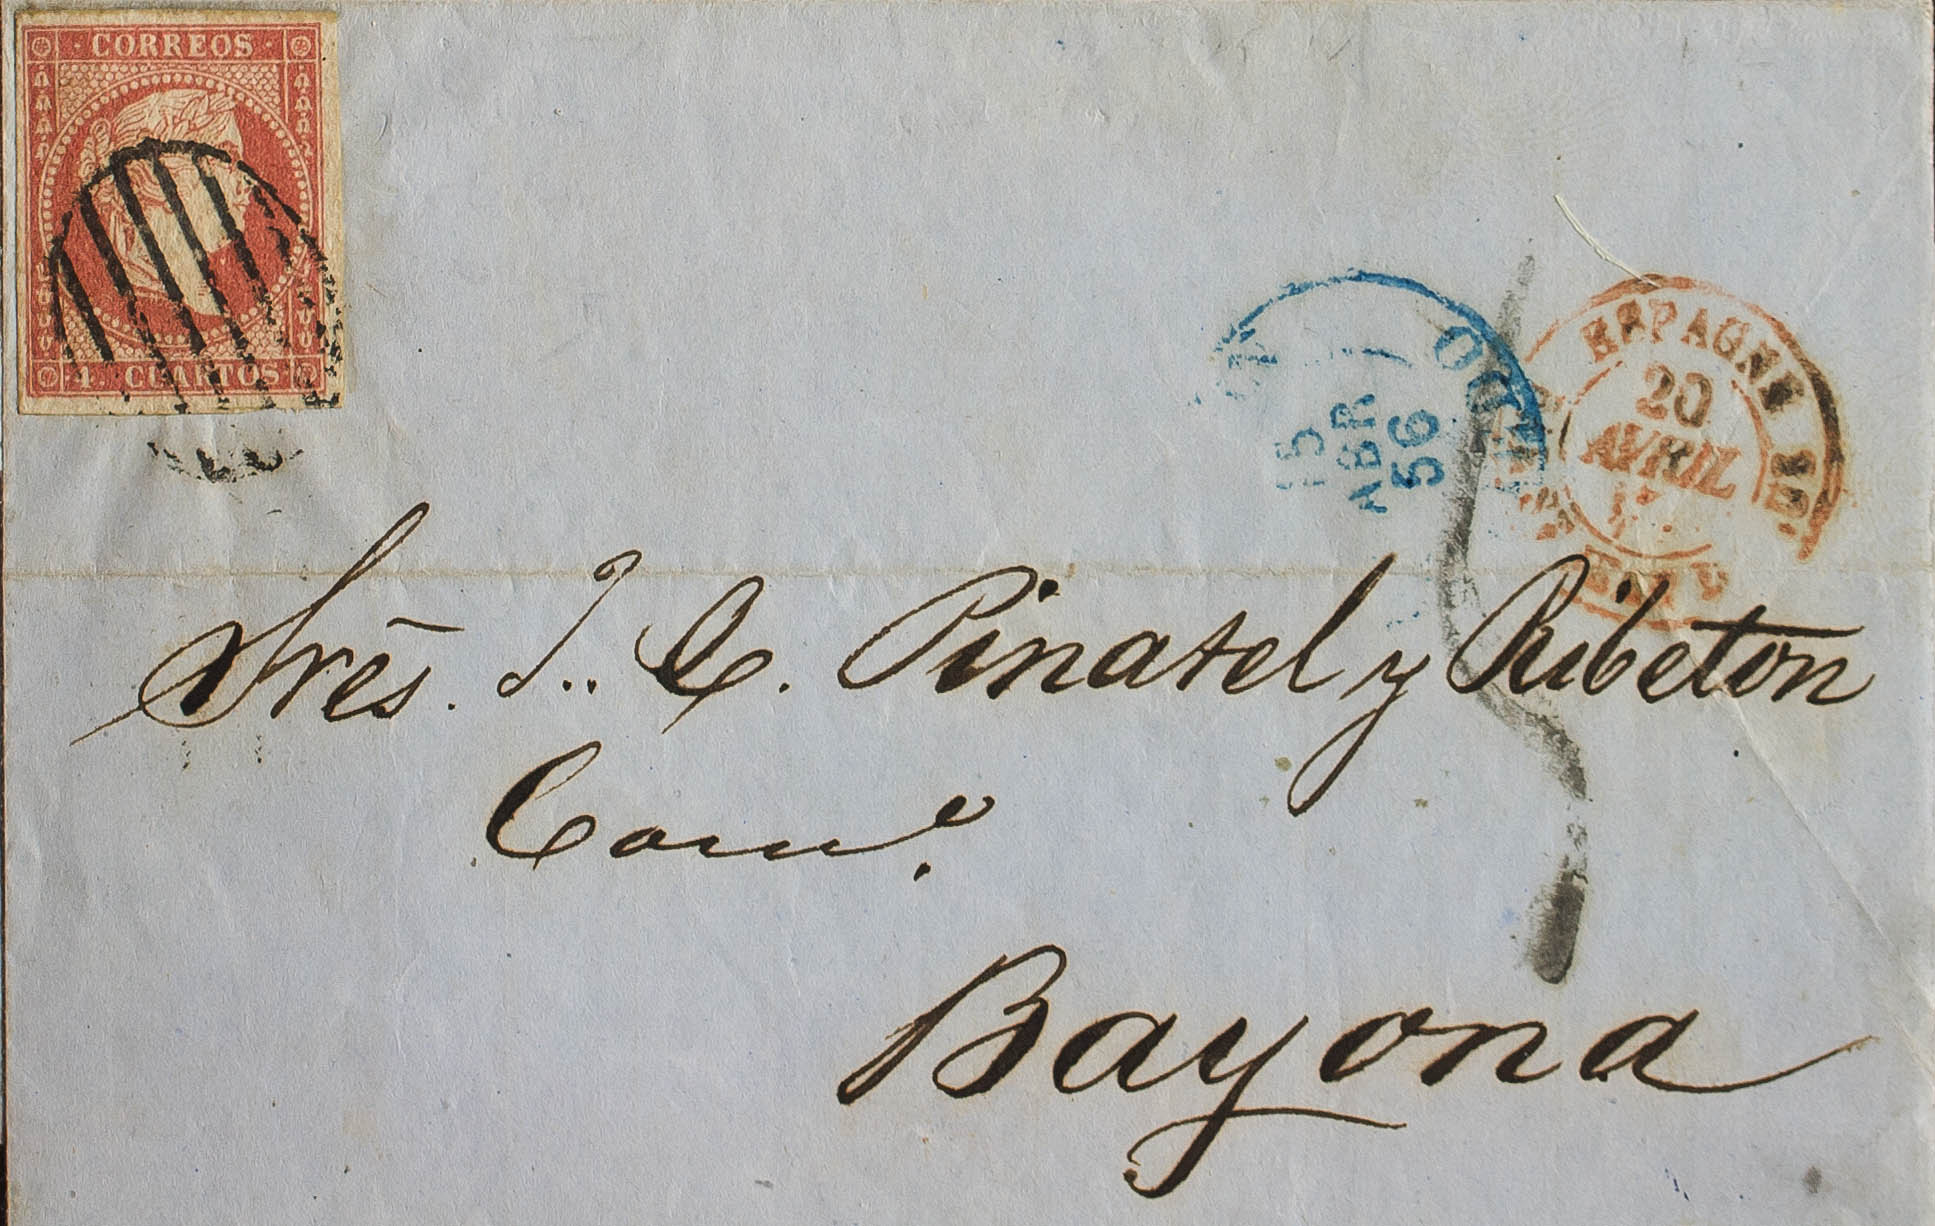 CORREOS
4 CUARTOS
15
ABR
56
ESPAGNE
20
AVRIL
Srēs. J. C. Pinatel y Ribeton
Comº.
Bayona